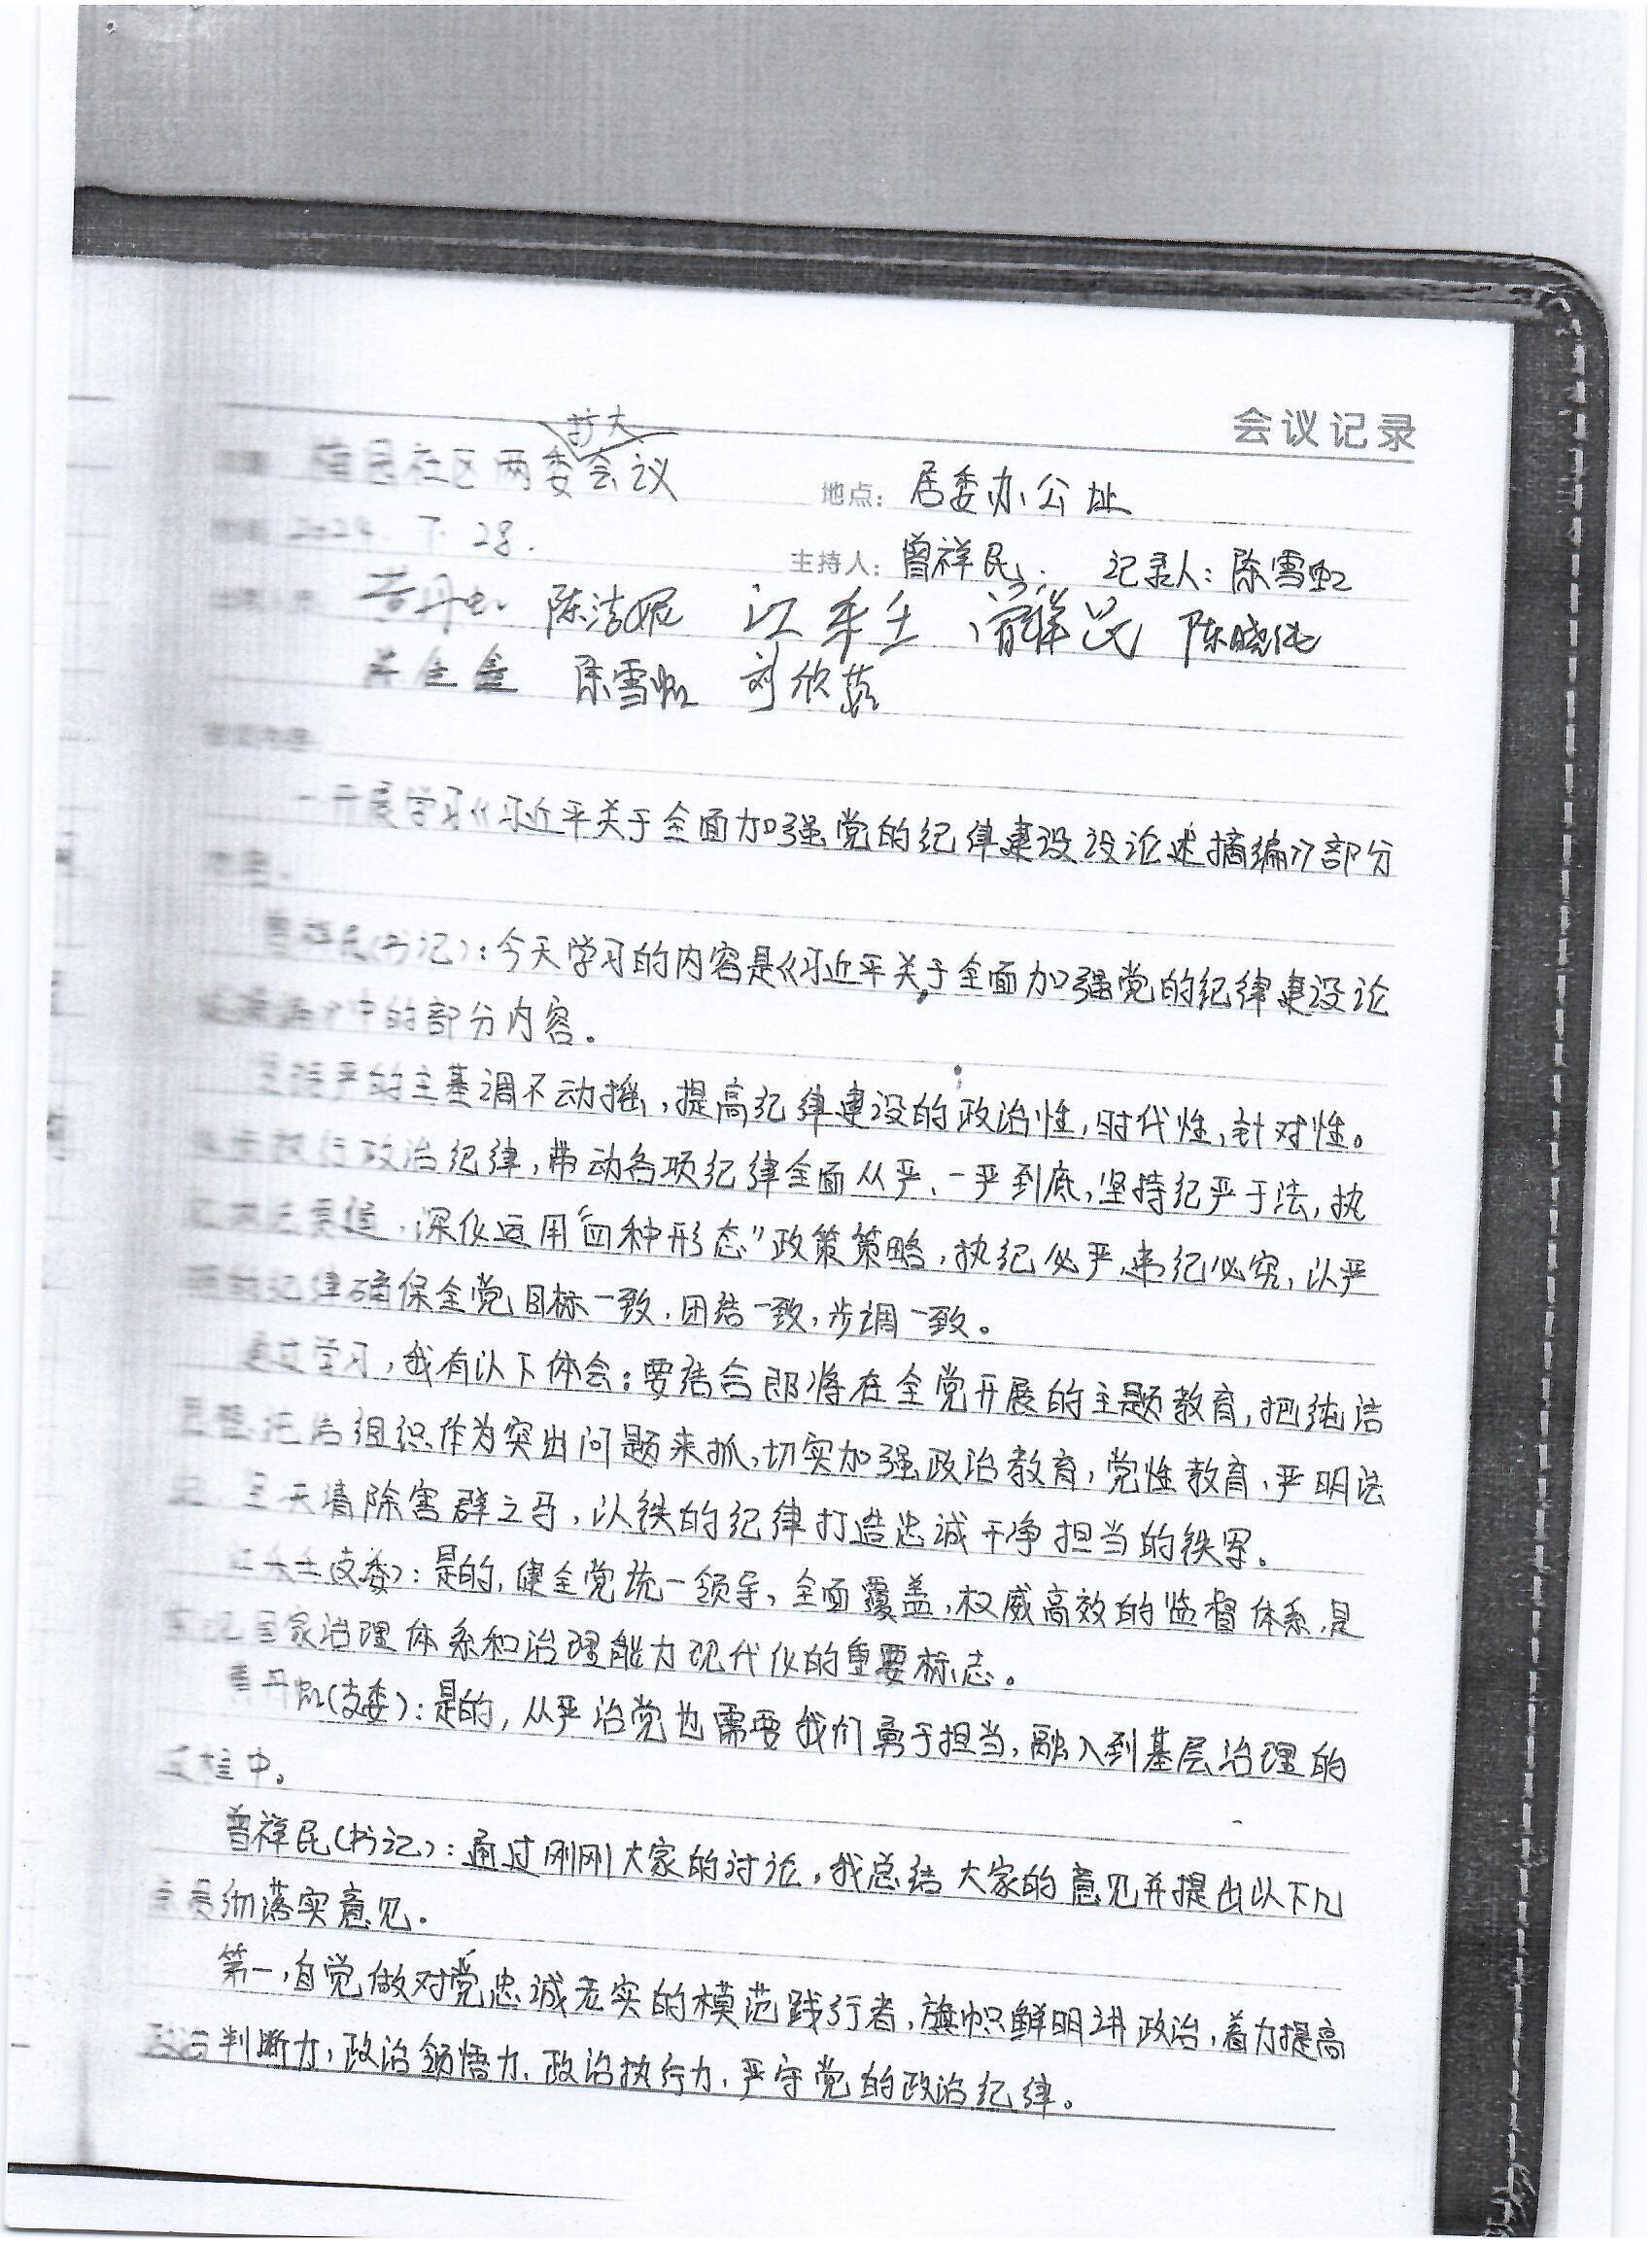 会议记录
扩大
社区两委会议 地点: 居委办公址
2024. 7. 28. 主持人: 曾祥民. 记录人: 陈雪虹
陈洁妮 江 曾祥民 陈晓纯
金鑫 陈雪虹 刘欣
一开展学习《习近平关于全面加强党的纪律建设设论述摘编》部分
曾祥民(书记): 今天学习的内容是《习近平关于全面加强党的纪律建设论
中的部分内容。
严的主基调不动摇,提高纪律建设的政治性,时代性,针对性。
执行政治纪律,带动各项纪律全面从严、一严到底,坚持纪严于法,执
深化运用“四种形态”政策策略,执纪必严,违纪必究,以严
纪律确保全党目标一致,团结一致,步调一致。
通过学习,我有以下体会:要结合即将在全党开展的主题教育,把纯洁
思想纯洁组织作为突出问题来抓,切实加强政治教育,党性教育,严明法
清除害群之马,以铁的纪律打造忠诚干净担当的铁军。
(支委): 是的,健全党统一领导,全面覆盖,权威高效的监督体系,是
国家治理体系和治理能力现代化的重要标志。
丹虹(支委): 是的,从严治党也需要我们勇于担当,融入到基层治理的
过程中。
曾祥民(书记): 通过刚刚大家的讨论,我总结大家的意见并提出以下几
彻落实意见.
第一,自觉做对党忠诚老实的模范践行者,旗帜鲜明讲政治,着力提高
政治判断力,政治领悟力、政治执行力,严守党的政治纪律。